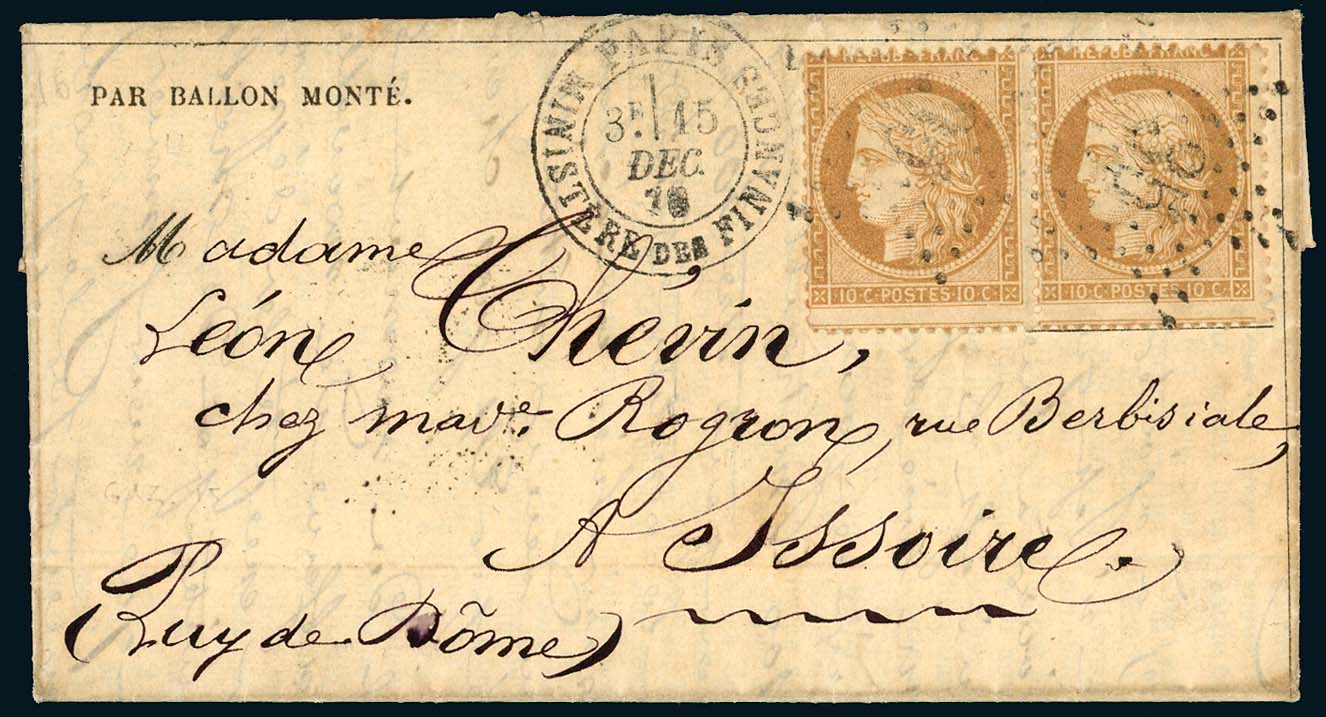 PAR BALLON MONTÉ.
PARIS
MINISTÈRE DES FINANCES
3E 15
DEC.
70
REPUB·FRANC
10·C·POSTES·10·C·
REPUB·FRANC
10·C·POSTES·10·C·
Madame
Léon Thévin,
chez mave. Rogron, rue Berbisiale,
A Issoire.
(Puy de Dôme)